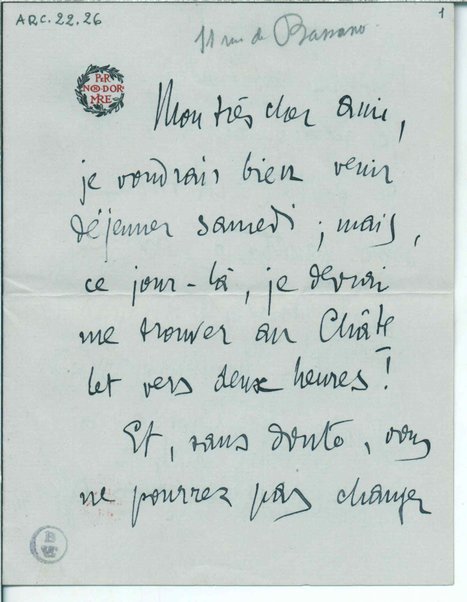 ARC.22.26
1
11 rue de Bassano
PER
NON DOR
MIRE
Mon très cher ami,
je voudrais bien venir
déjeuner samedi ; mais,
ce jour-là, je devrai
me trouver au Châte
let vers deux heures !
Et, sans doute, vous
ne pourrez pas changer